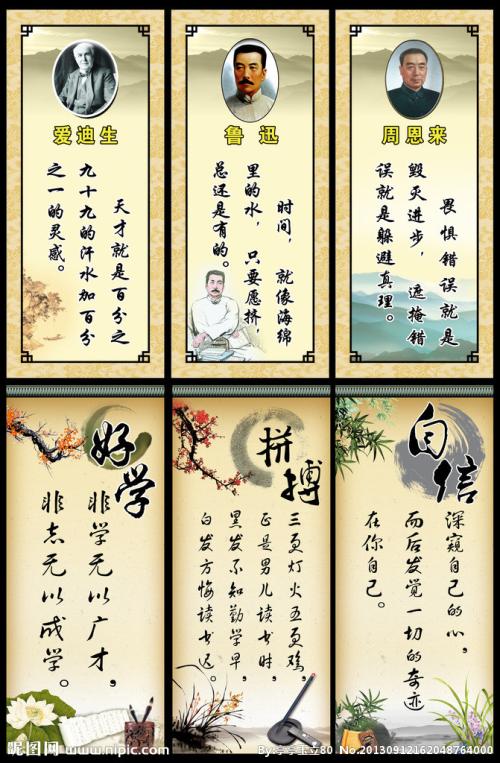 爱迪生
天才就是百分之
九十九的汗水加百分
之一的灵感。
鲁迅
时间，就像海绵
里的水，只要愿挤，
总还是有的。
周恩来
畏惧错误就是
毁灭进步，遮掩错
误就是躲避真理。
好学
非学无以广才，
非志无以成学。
拼搏
三更灯火五更鸡，
正是男儿读书时，
黑发不知勤学早，
白发方悔读书迟。
自信
深窥自己的心，
而后发觉一切的奇迹
在你自己。
昵图网 www.nipic.com
By:亭亭玉立80 No.20130912162048764000